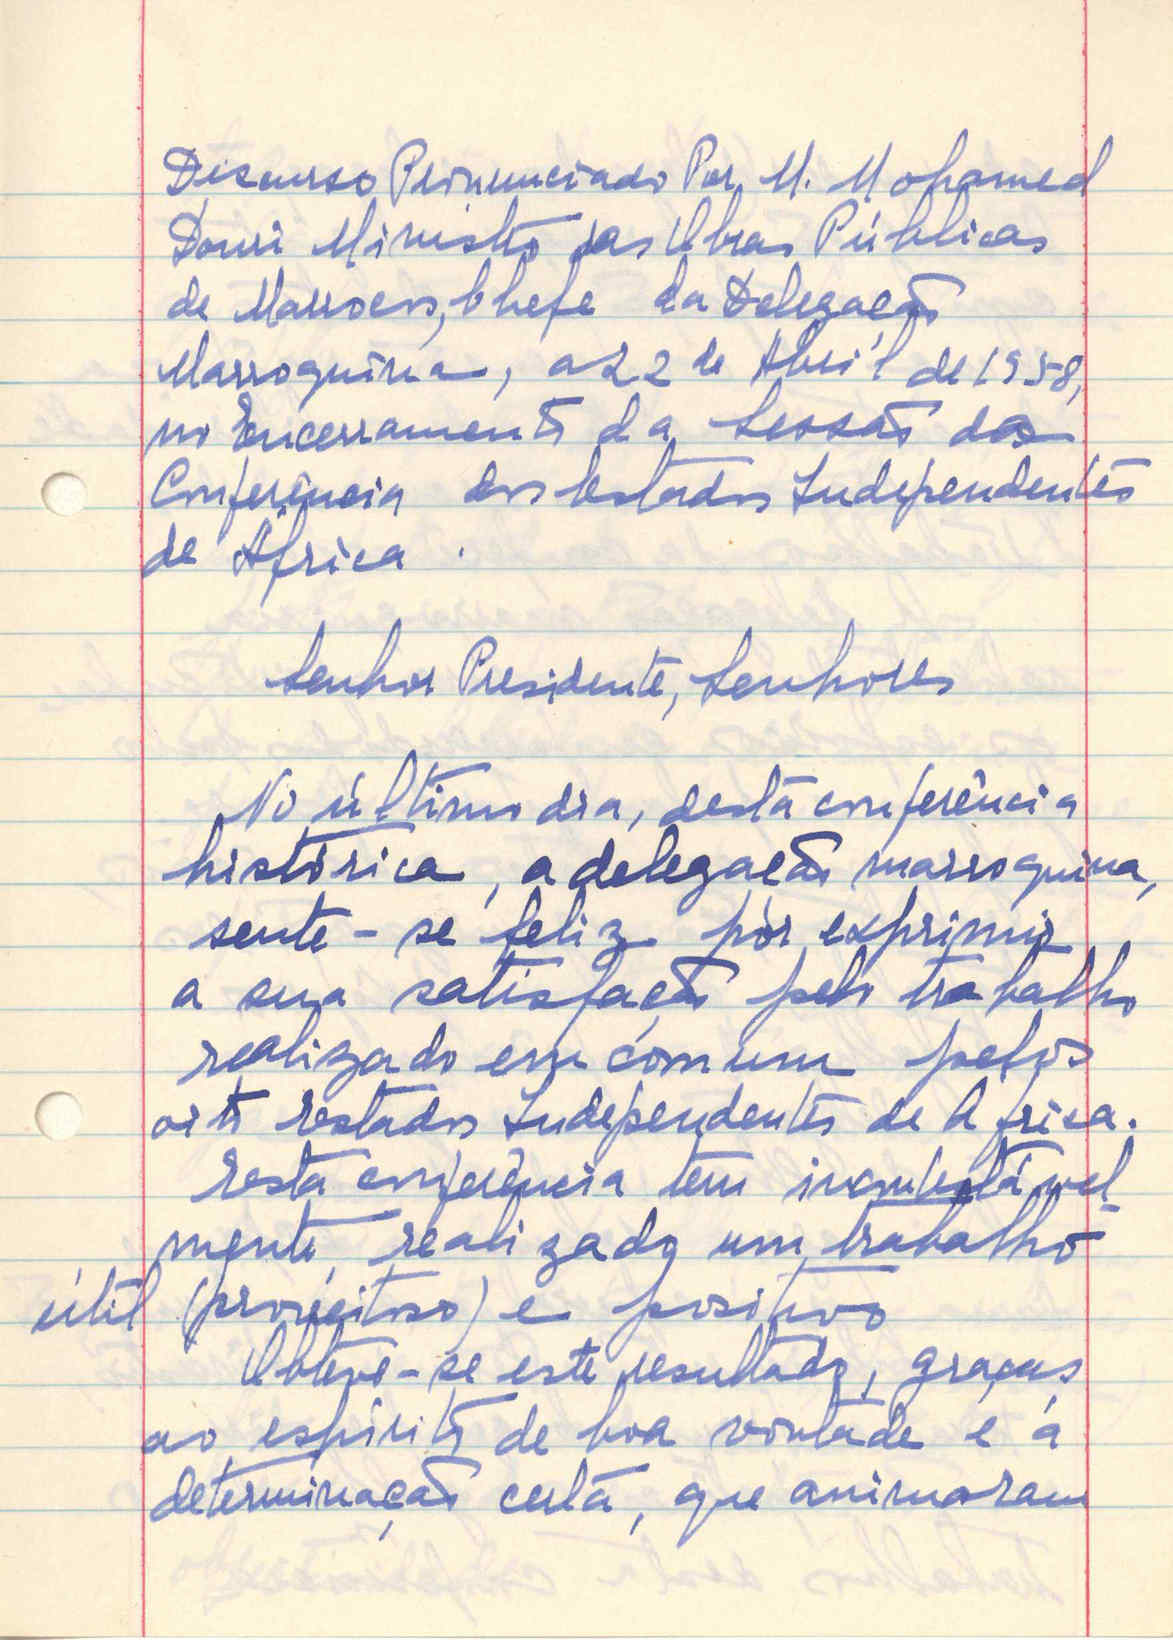 Discurso Pronunciado Por M. Mohamed
Douri Ministro das Obras Públicas
de Marrocos, Chefe da Delegação
Marroquina, a 22 de Abril de 1958,
no Encerramento da Sessão da
Conferência dos Estados Independentes
de Africa.
Senhor Presidente, Senhores
No último dia, desta conferência
histórica, a delegação marroquina,
sente-se feliz por exprimir
a sua satisfação pelo trabalho
realizado em comum pelos
oito Estados Independentes de Africa.
Esta conferência tem incontestável
mente, realizado um trabalho
útil (proveitoso) e positivo
Obteve-se este resultado, graças
ao espírito de boa vontade e á
determinação certa, que animaram